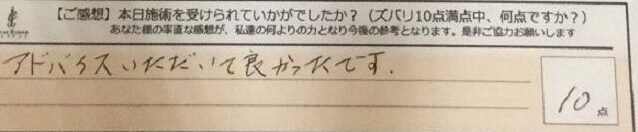 【ご感想】本日施術を受けられていかがでしたか？（ズバリ10点満点中、何点ですか？）
あなた様の率直な感想が、私達の何よりの力となり今後の参考となります。是非ご協力お願いします
アドバイスいただいて良かったです.
10点